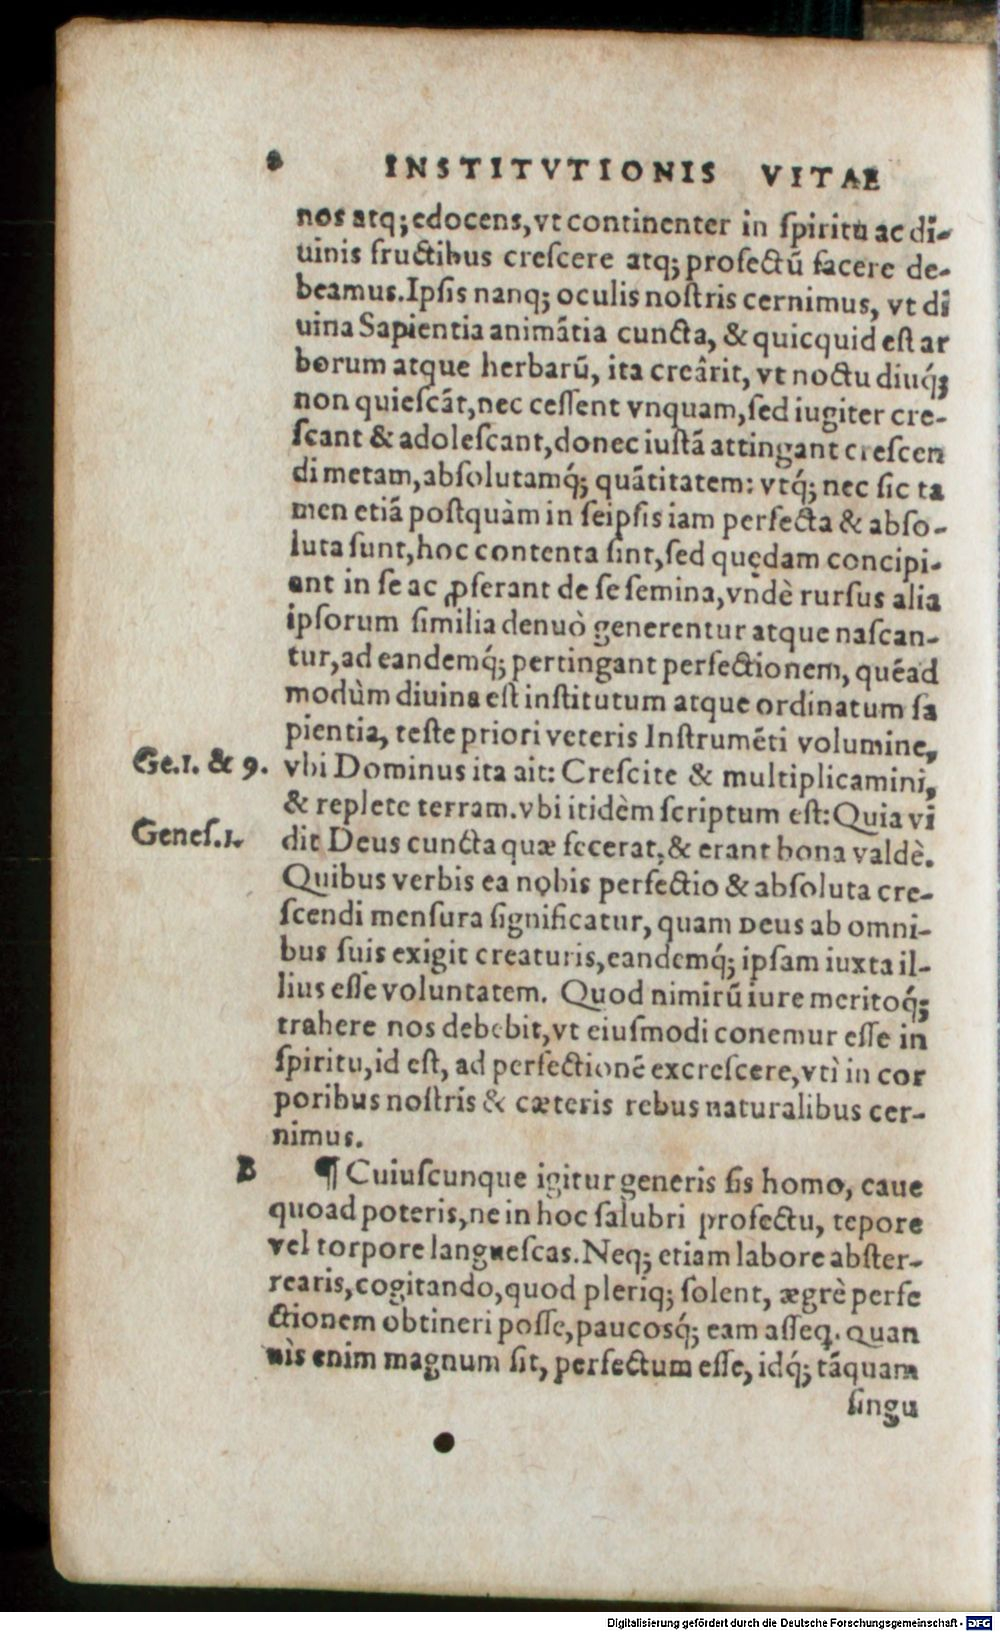 8 INSTITVTIONIS VITAE
nos atq; edocens, vt continenter in spiritu ac di-
uinis fructibus crescere atq; profectū facere de-
beamus. Ipsis nanq; oculis nostris cernimus, vt di
uina Sapientia animātia cuncta, & quicquid est ar
borum atque herbarū, ita creârit, vt noctu diuq́;
non quiescāt, nec cessent vnquam, sed iugiter cre-
scant & adolescant, donec iustā attingant crescen
di metam, absolutamq́; quātitatem: vtq́; nec sic ta
men etiā postquàm in seipsis iam perfecta & abso-
luta sunt, hoc contenta sint, sed quędam concipi-
ant in se ac ꝓferant de se semina, vndè rursus alia
ipsorum similia denuò generentur atque nascan-
tur, ad eandemq́; pertingant perfectionem, quēad
modùm diuina est institutum atque ordinatum sa
pientia, teste priori veteris Instrumēti volumine,
Ge.1. & 9. vbi Dominus ita ait: Crescite & multiplicamini,
& replete terram. vbi itidèm scriptum est: Quia vi
Genes.1. dit Deus cuncta quæ fecerat, & erant bona valdè.
Quibus verbis ea nobis perfectio & absoluta cre-
scendi mensura significatur, quam Deus ab omni-
bus suis exigit creaturis, eandemq́; ipsam iuxta il-
lius esse voluntatem. Quod nimirū iure meritoq́;
trahere nos debebit, vt eiusmodi conemur esse in
spiritu, id est, ad perfectionē excrescere, vtì in cor
poribus nostris & cæteris rebus naturalibus cer-
nimus.
B ¶ Cuiuscunque igitur generis sis homo, caue
quoad poteris, ne in hoc salubri profectu, tepore
vel torpore languescas. Neq; etiam labore abster-
rearis, cogitando, quod pleriq; solent, ægrè perfe
ctionem obtineri posse, paucosq́; eam asseq̨. Quan
uìs enim magnum sit, perfectum esse, idq́; tāquam
singu
Digitalisierung gefördert durch die Deutsche Forschungsgemeinschaft - DFG